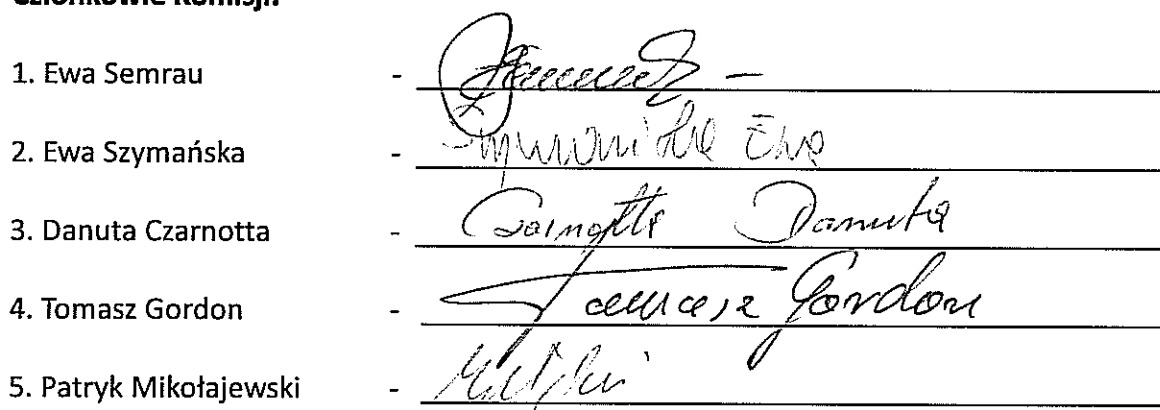 Członkowie Komisji:
1. Ewa Semrau -
2. Ewa Szymańska - Szymańska Ewa
3. Danuta Czarnotta - Czarnotta Danuta
4. Tomasz Gordon - Tomasz Gordon
5. Patryk Mikołajewski -